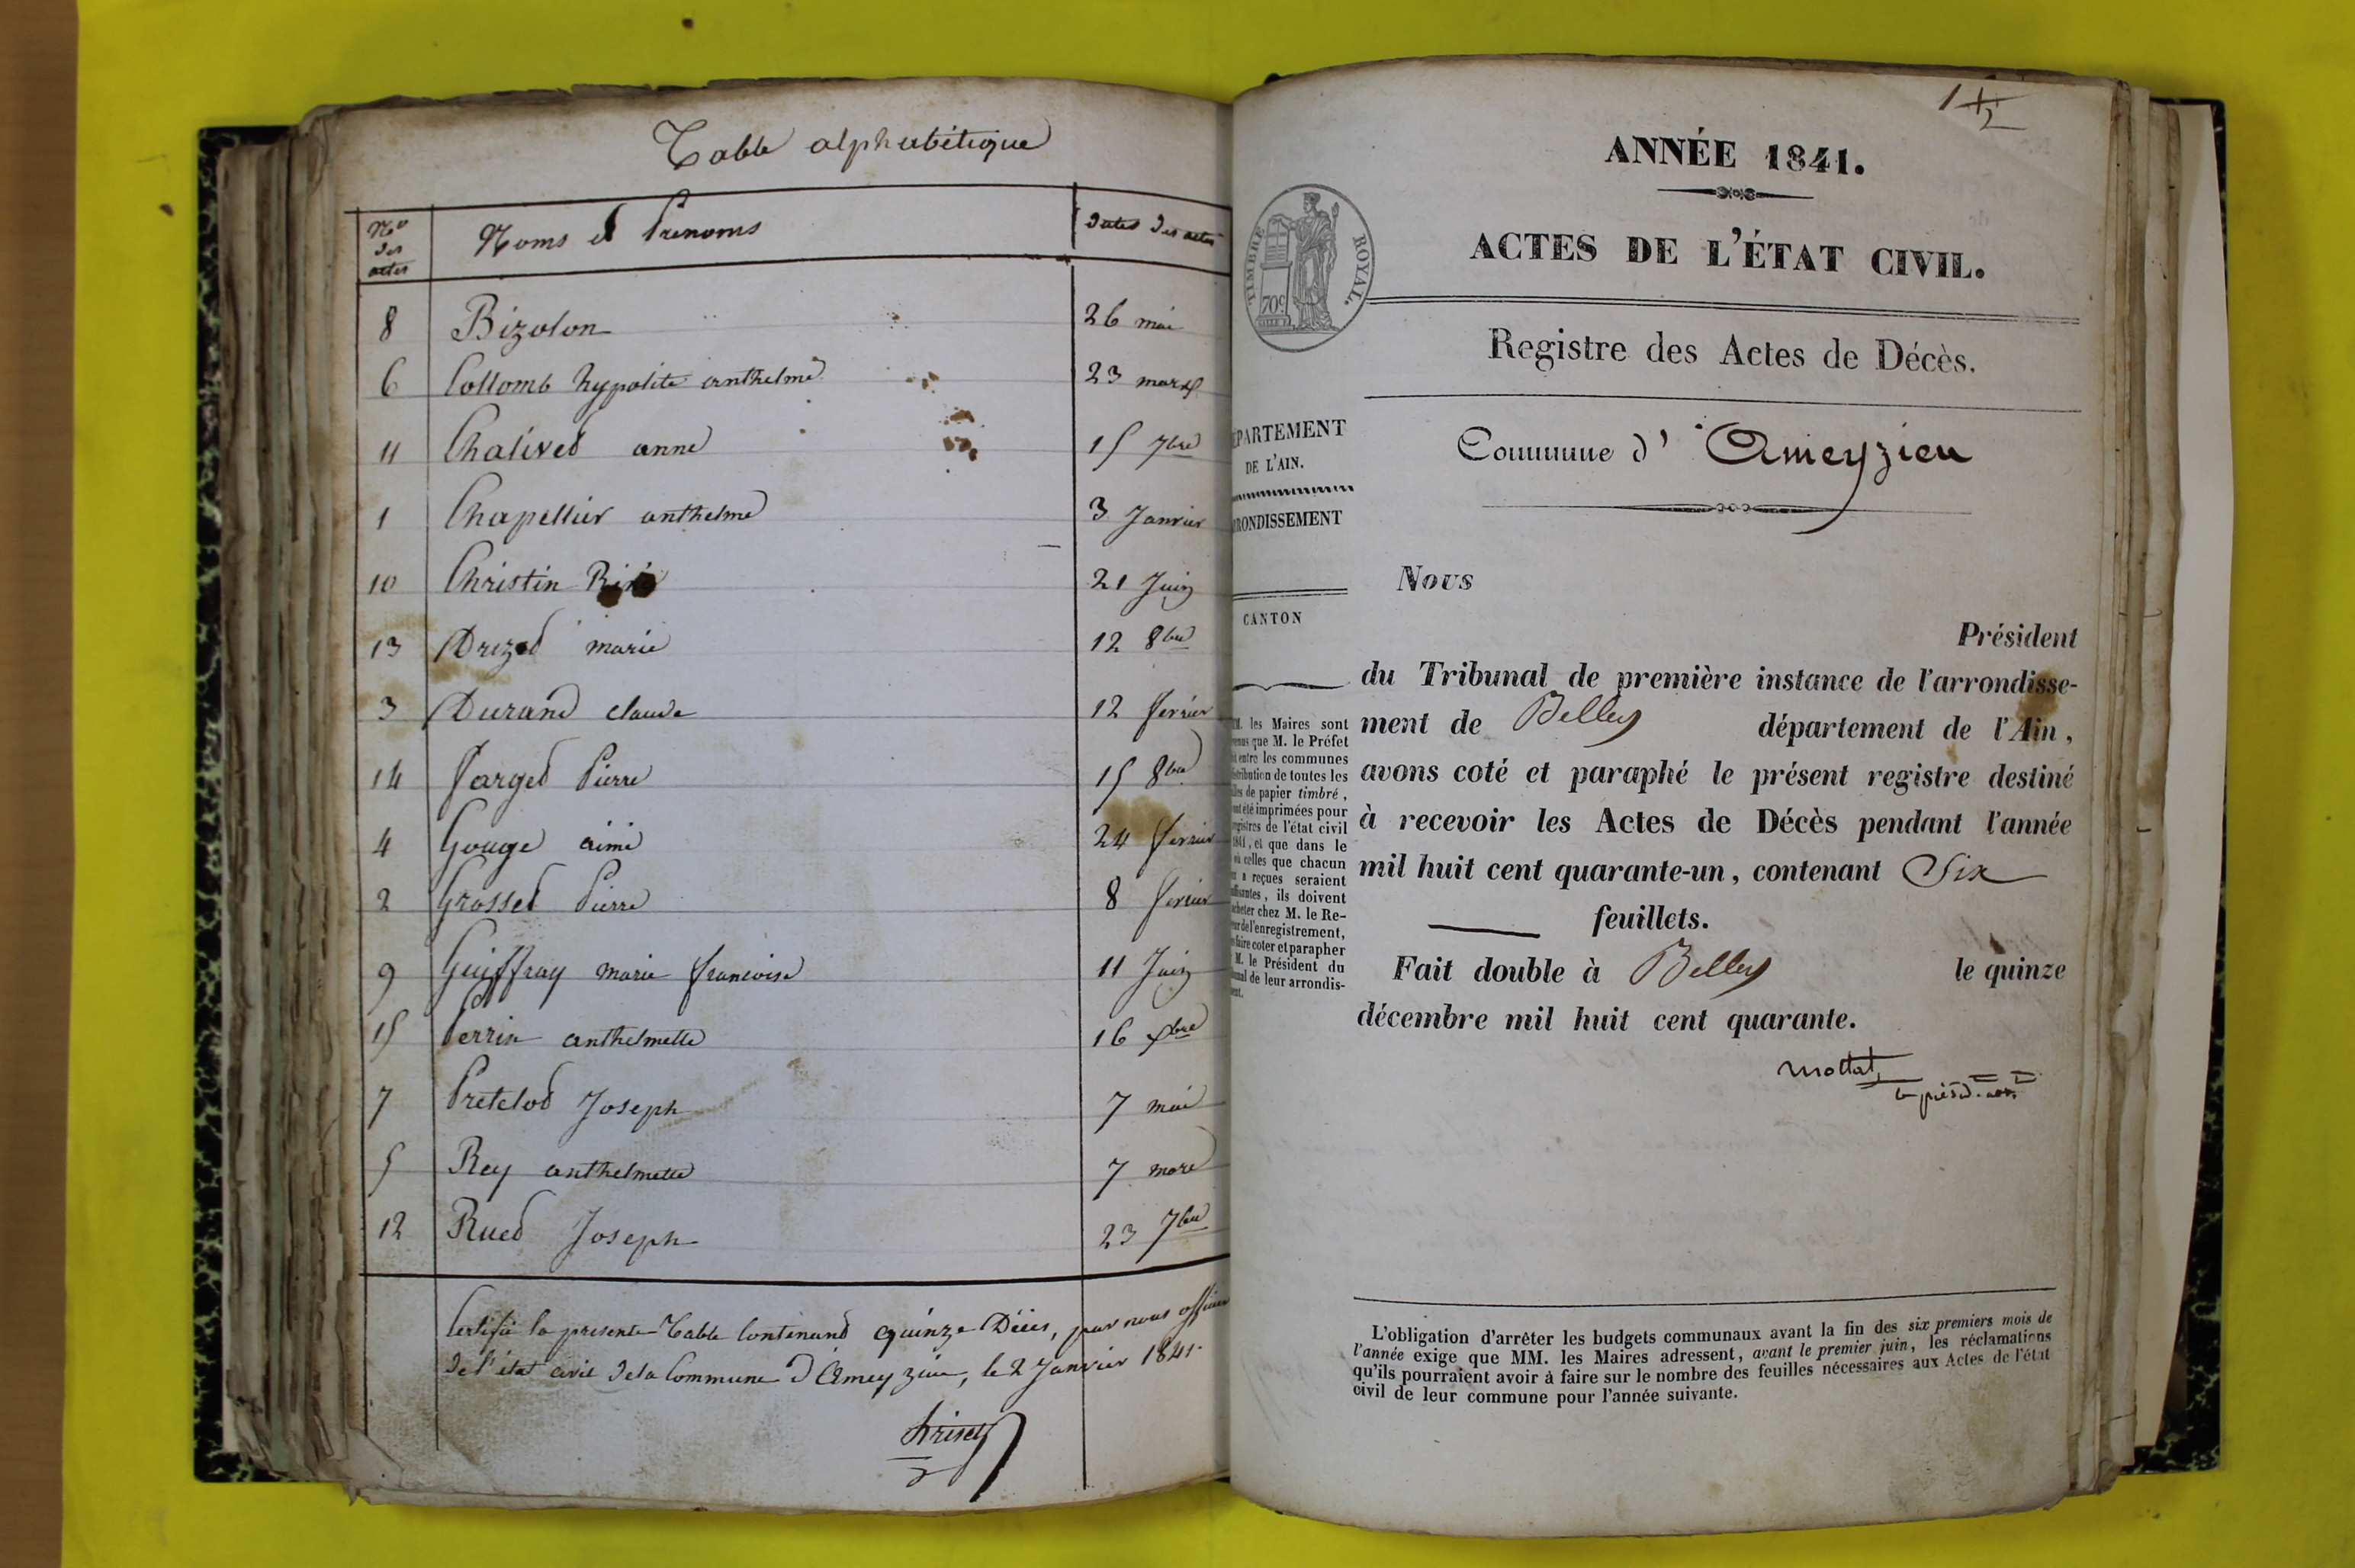 Table alphabétique
Nos des actes
Noms et Prenoms
Dates des actes
8 Bizolon 26 mai
6 Collomb hypolite anthelme 23 mars
11 Chalived anne 15 7bre
1 Chapellier anthelme 3 Janvier
10 Christin 21 Juin
13 Drized marie 12 8bre
3 Durand claude 12 fevrier
14 farged Pierre 15 8bre
4 Gouge aimé 24 fevrier
2 Grossed Pierre 8 fevrier
9 Guiffray marie francoise 11 Juin
15 Perrin anthelmette 16 xbre
7 Pretelod Joseph 7 mai
5 Rey anthelmette 7 mars
12 Rued Joseph 23 7bre
Certifié la presente Table Contenand quinze Décés, par nous officier
de l'état civil de la Commune d'Ameyzieu, le 2 Janvier 1841.
1
ANNÉE 1841.
ACTES DE L'ÉTAT CIVIL.
TIMBRE ROYAL.
70c
Registre des Actes de Décès.
Commune d' Ameyzieu
DÉPARTEMENT
DE L'AIN.
ARRONDISSEMENT
CANTON
MM. les Maires sont
que M. le Préfet
entre les communes
distribution de toutes les
de papier timbré,
ont été imprimées pour
registres de l'état civil
1841, et que dans le
où celles que chacun
a reçues seraient
, ils doivent
acheter chez M. le Re-
de l'enregistrement,
faire coter et parapher
M. le Président du
de leur arrondis-
Nous
Président
du Tribunal de première instance de l'arrondisse-
ment de Belley département de l'Ain,
avons coté et paraphé le présent registre destiné
à recevoir les Actes de Décès pendant l'année
mil huit cent quarante-un, contenant Six
feuillets.
Fait double à Belley le quinze
décembre mil huit cent quarante.
L'obligation d'arrêter les budgets communaux avant la fin des six premiers mois de
l'année exige que MM. les Maires adressent, avant le premier juin, les réclamations
qu'ils pourraient avoir à faire sur le nombre des feuilles nécessaires aux Actes de l'état
civil de leur commune pour l'année suivante.